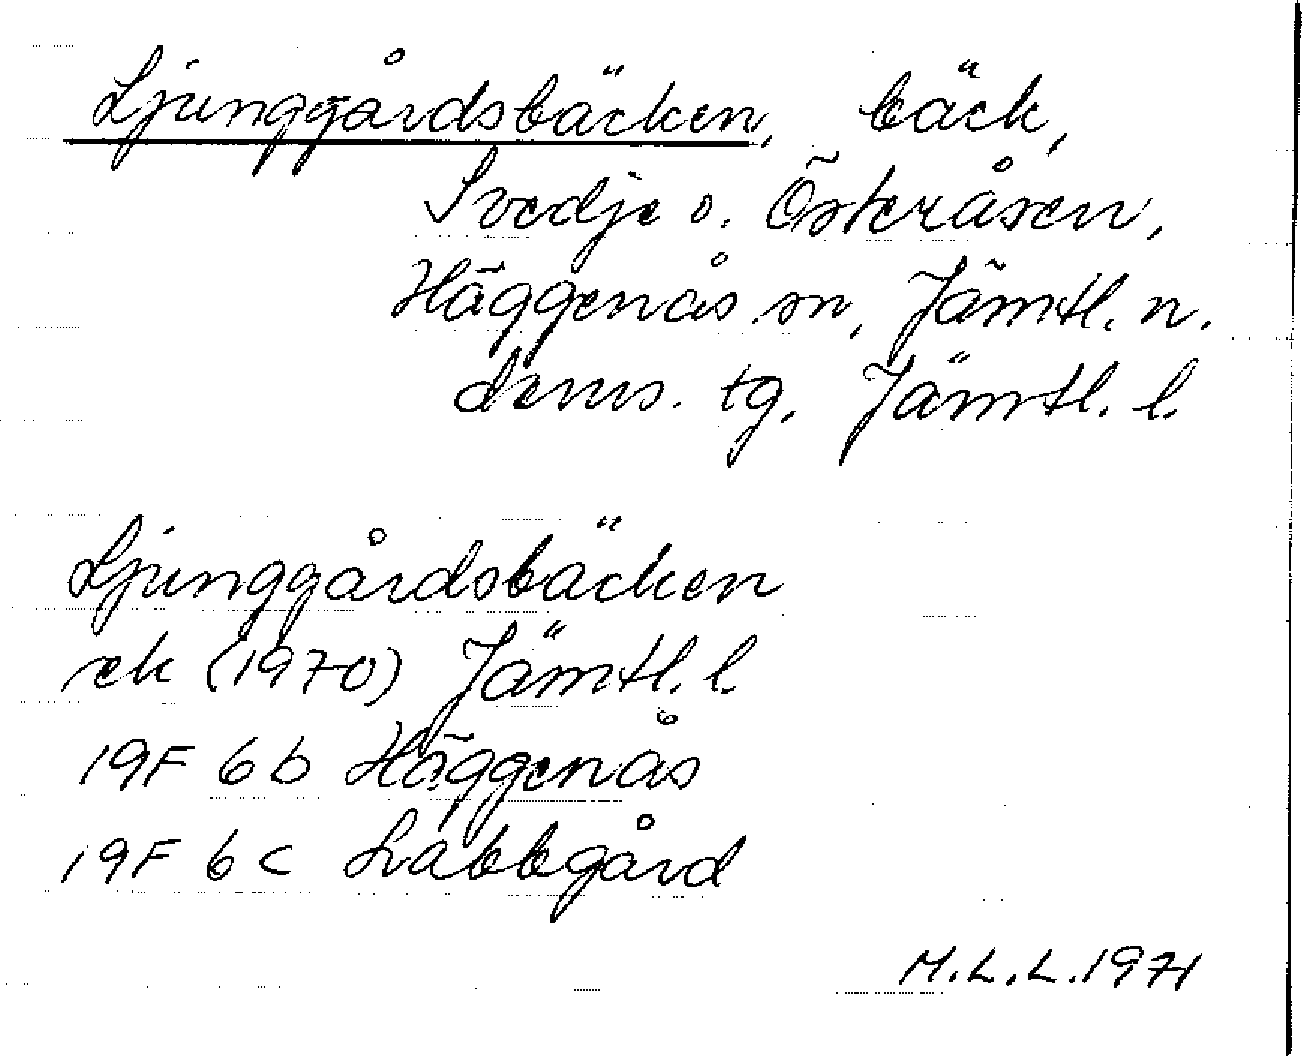 Ljunggårdsbäcken, bäck,
Svedje o. Österåsen,
Häggenås sn, Jämtl. n.
doms. tg, Jämtl. l.
Ljunggårdsbäcken
ek (1970) Jämtl. l.
19F 6b Häggenås
19F 6c Labbgård
M.L.L. 1971